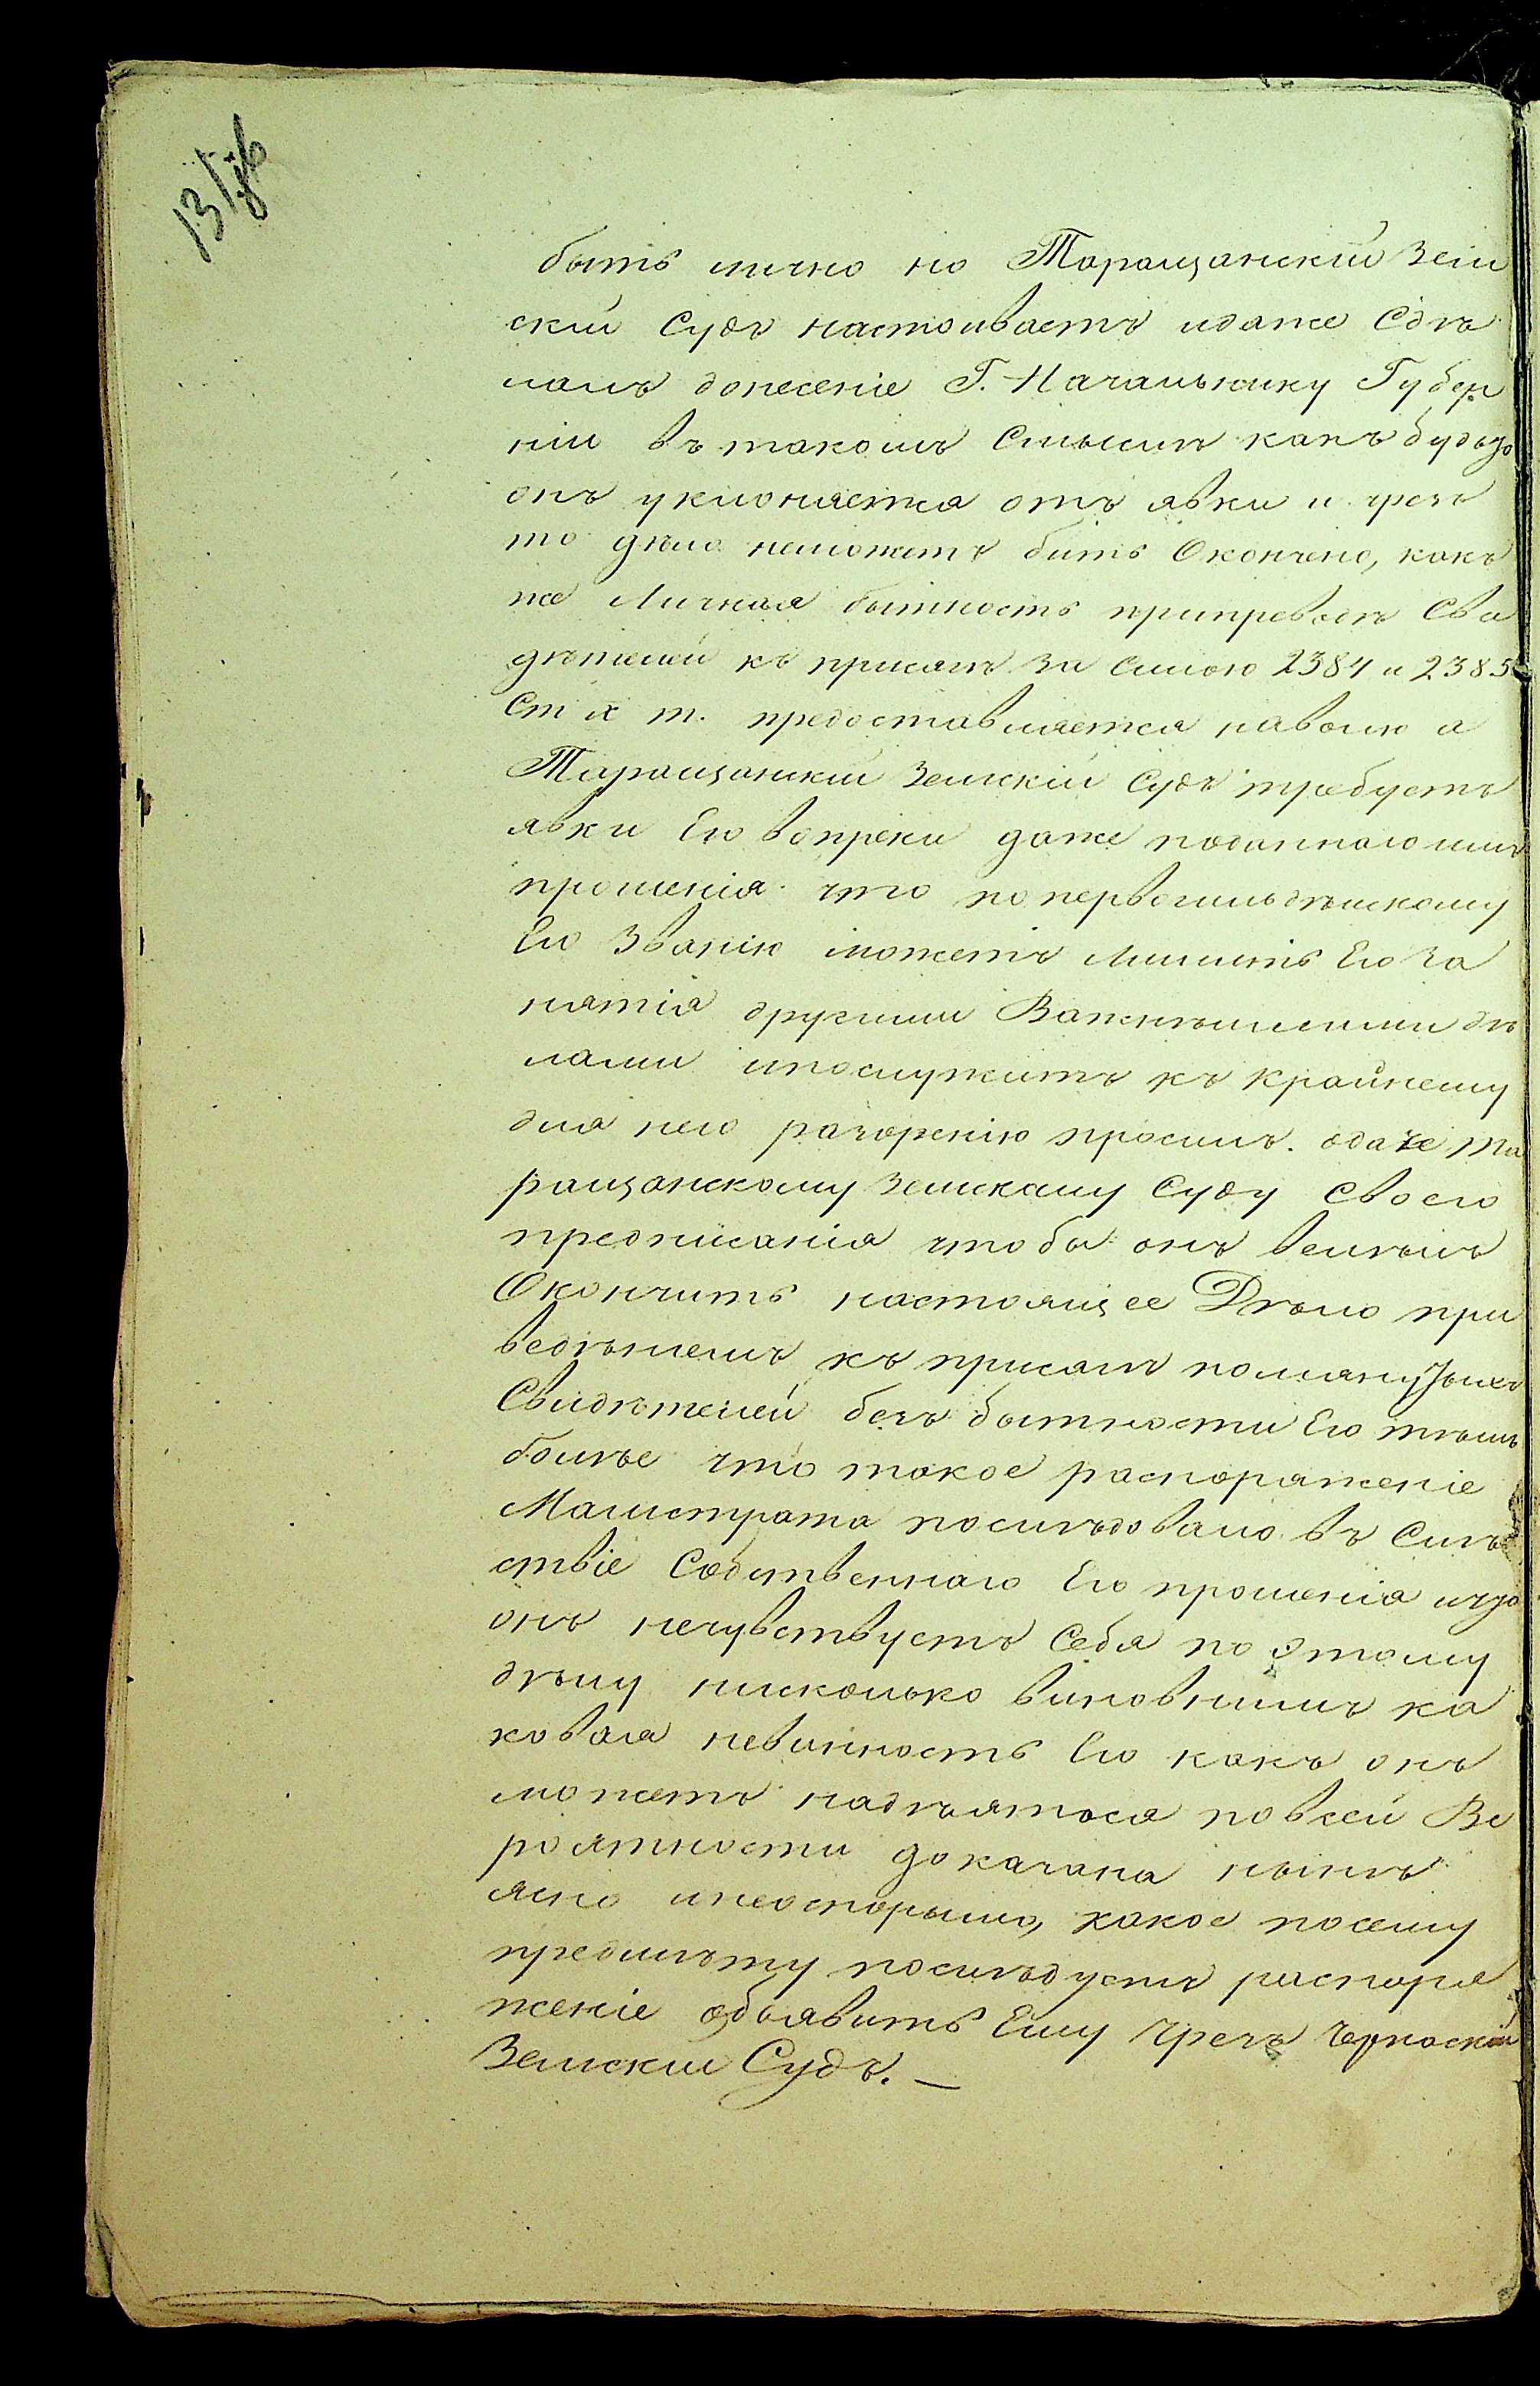 быть лично но Таращанскій Зем
скій Судъ настоиваетъ идаже Сдѣ
лалъ донесеніе Г. Начальнику Губер
ніи въ такомъ Смыслѣ какъ будьто
онъ уклоняется отъ явки и чрезъ
то дѣло неможетъ бить Окончено, какъ
же Личная бытность приприводѣ Сви
дѣтелей къ присягѣ За силою 2384 и 2385
Ст х т. предоставляется наволю а
Таращанскій Земскій Судъ требуетъ
явки Его вопреки даже поданнаго имъ
прошенія что по первогильдѣйскому
Его Званію можетъ Лишить Его За
нятія другими Важнѣйшими дѣ
лами ипослужитъ къ крайнему
для него разоренію просилъ. одаче та
ращанскому Земскому Суду Своего
предписанія что бы онъ велѣлъ
Окончить настоящее Дѣло при
ведѣніемъ къ присягѣ помянутыхъ
Свидѣтелей безъ бытности Его тѣмъ
болѣе что такое распоряженіе
Магистрата послѣдовало въ Слѣд
ствіе Собственнаго Его прошенія ичто
онъ нечувствуетъ Себя по этому
дѣлу нисколько виновнимъ ка
ковая невинность Его какъ онъ
можетъ надѣятося повсей Ве
роятности доказана нынѣ
ясно инеоспоримо, какое посему
предмѣту послѣдуетъ распоря
женіе объявить Ему чрезъ Черкаскій
Земскій Судъ. —